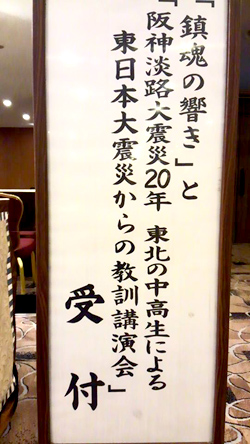 「鎮魂の響き」と
「阪神淡路大震災20年 東北の中高生による
東日本大震災からの教訓講演会」
受付